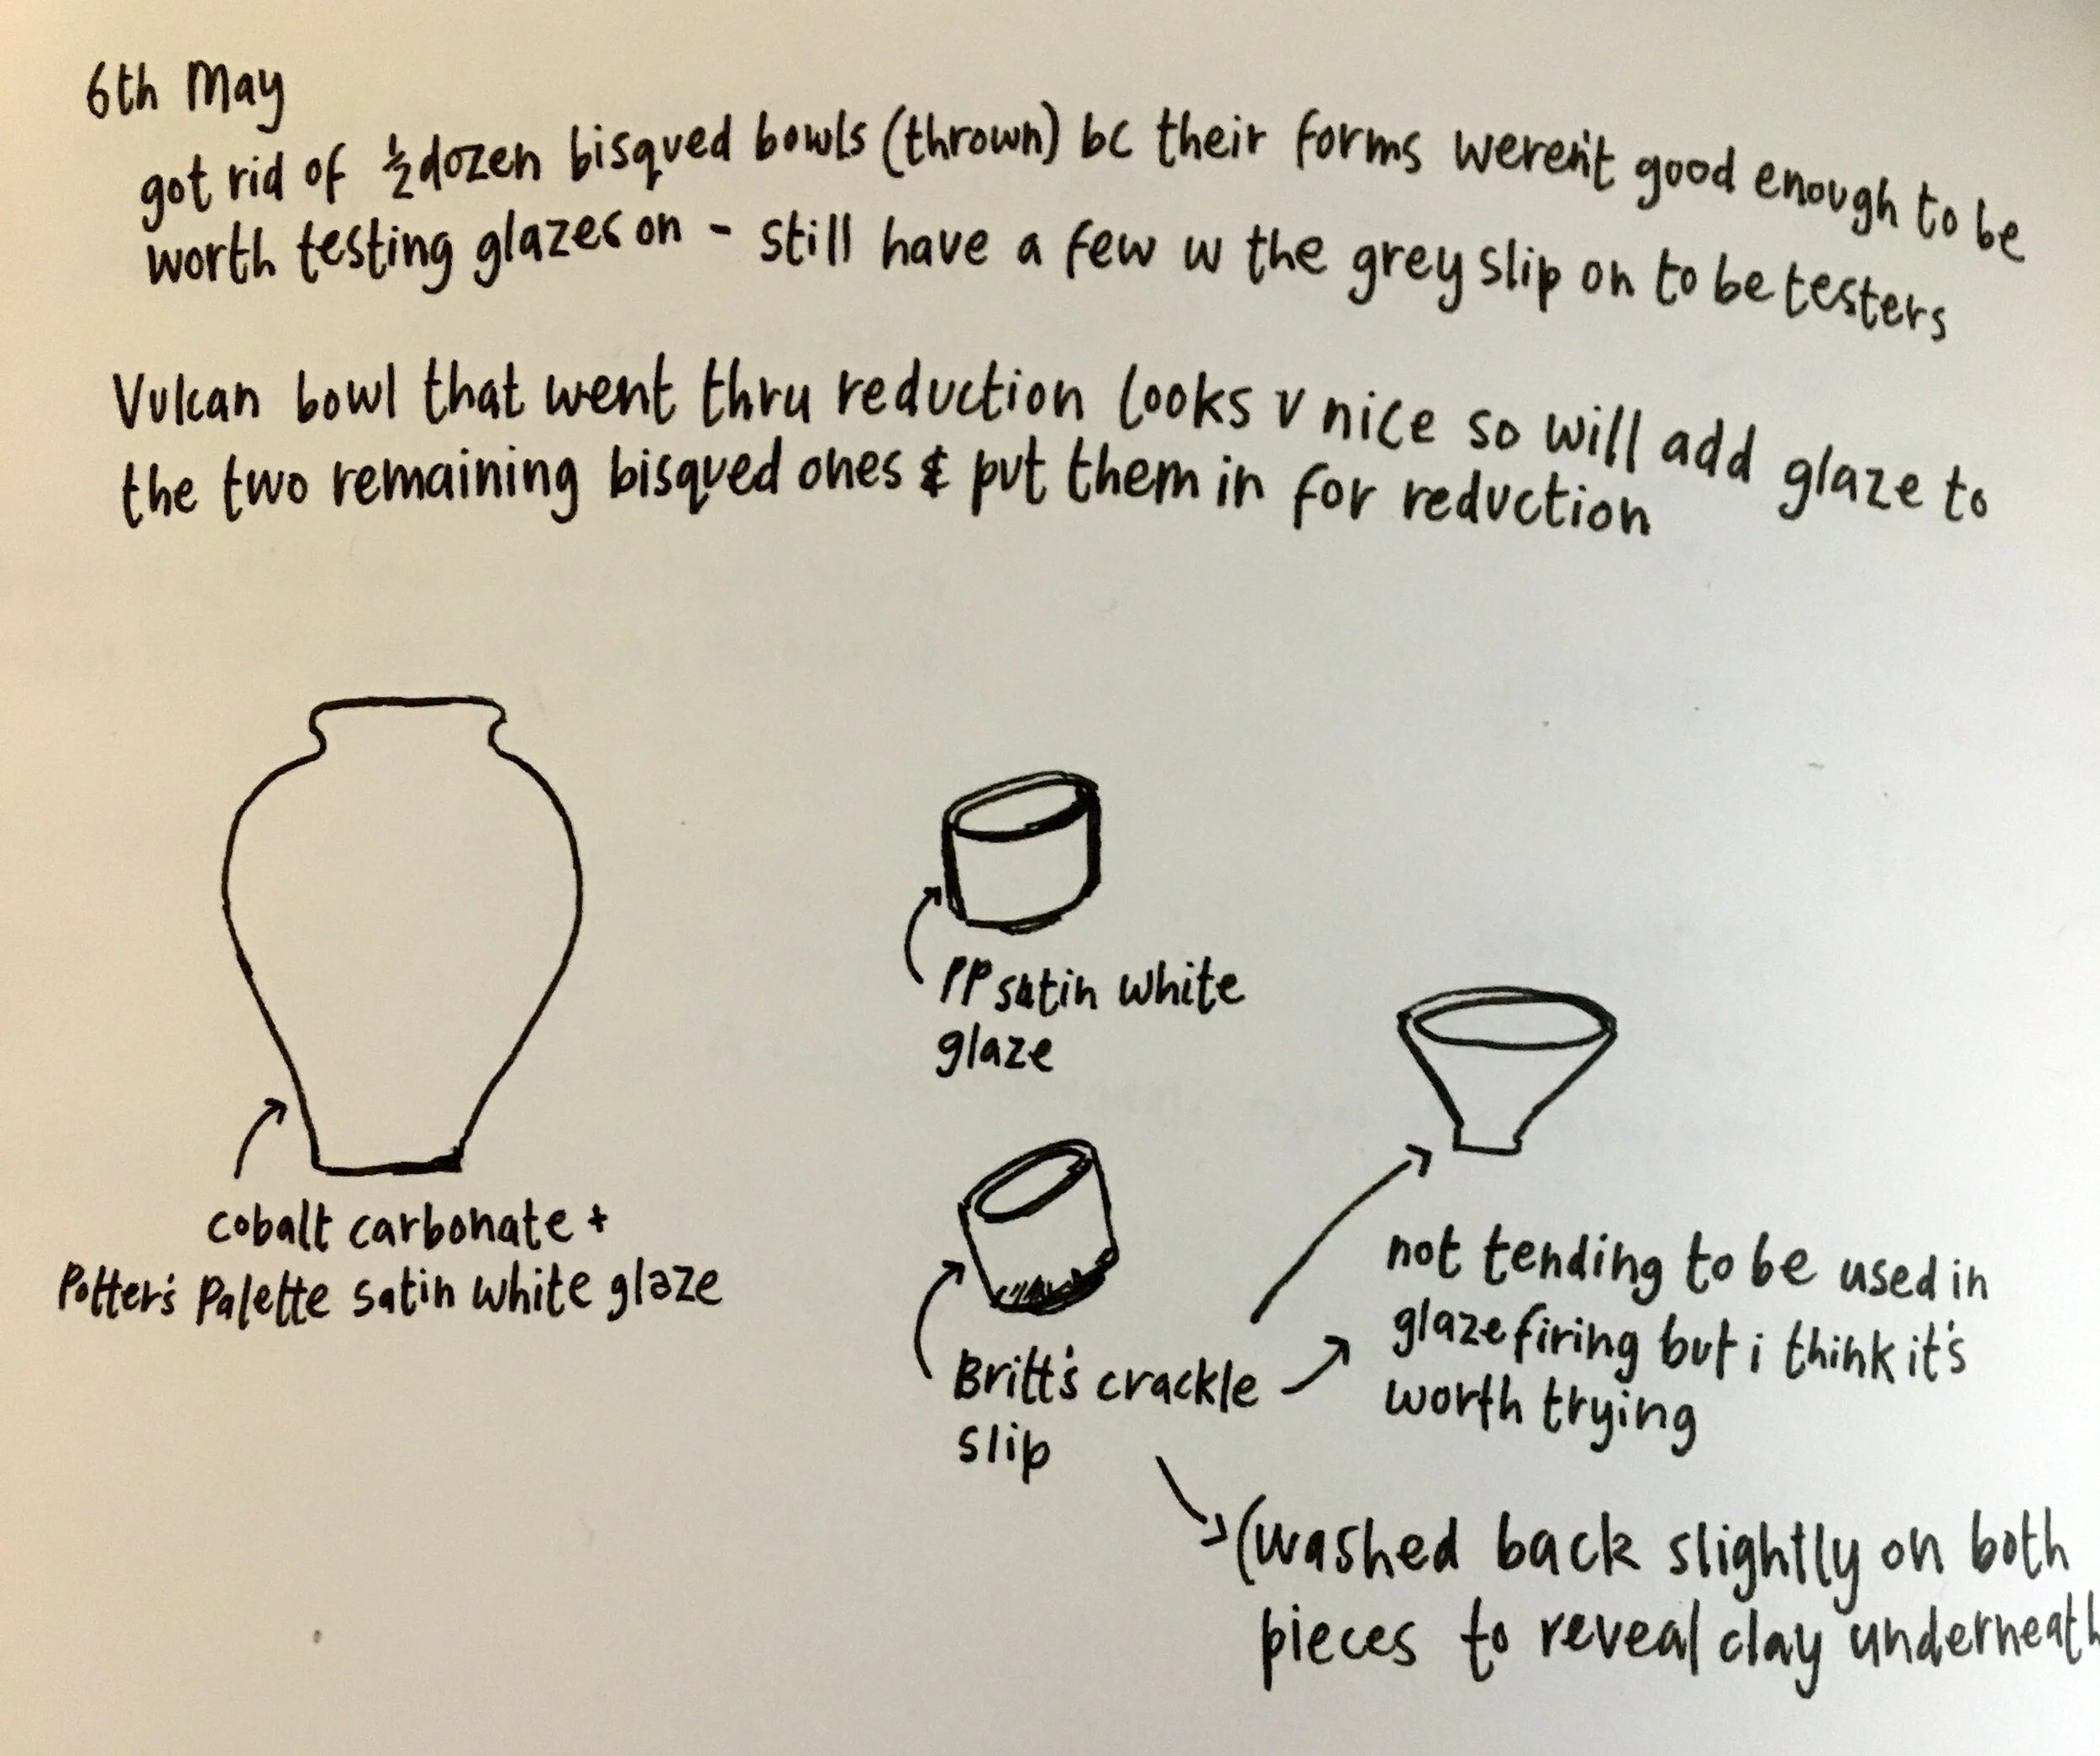 6th May
got rid of ½ dozen bisqued bowls (thrown) bc their forms weren't good enough to be
worth testing glazes on - still have a few w the grey slip on to be testers
Vulcan bowl that went thru reduction looks v nice so will add glaze to
the two remaining bisqued ones & put them in for reduction
cobalt carbonate +
Potter's Palette satin white glaze
PP satin white
glaze
Britt's crackle
slip
not tending to be used in
glaze firing but i think it's
worth trying
(washed back slightly on both
pieces to reveal clay underneath